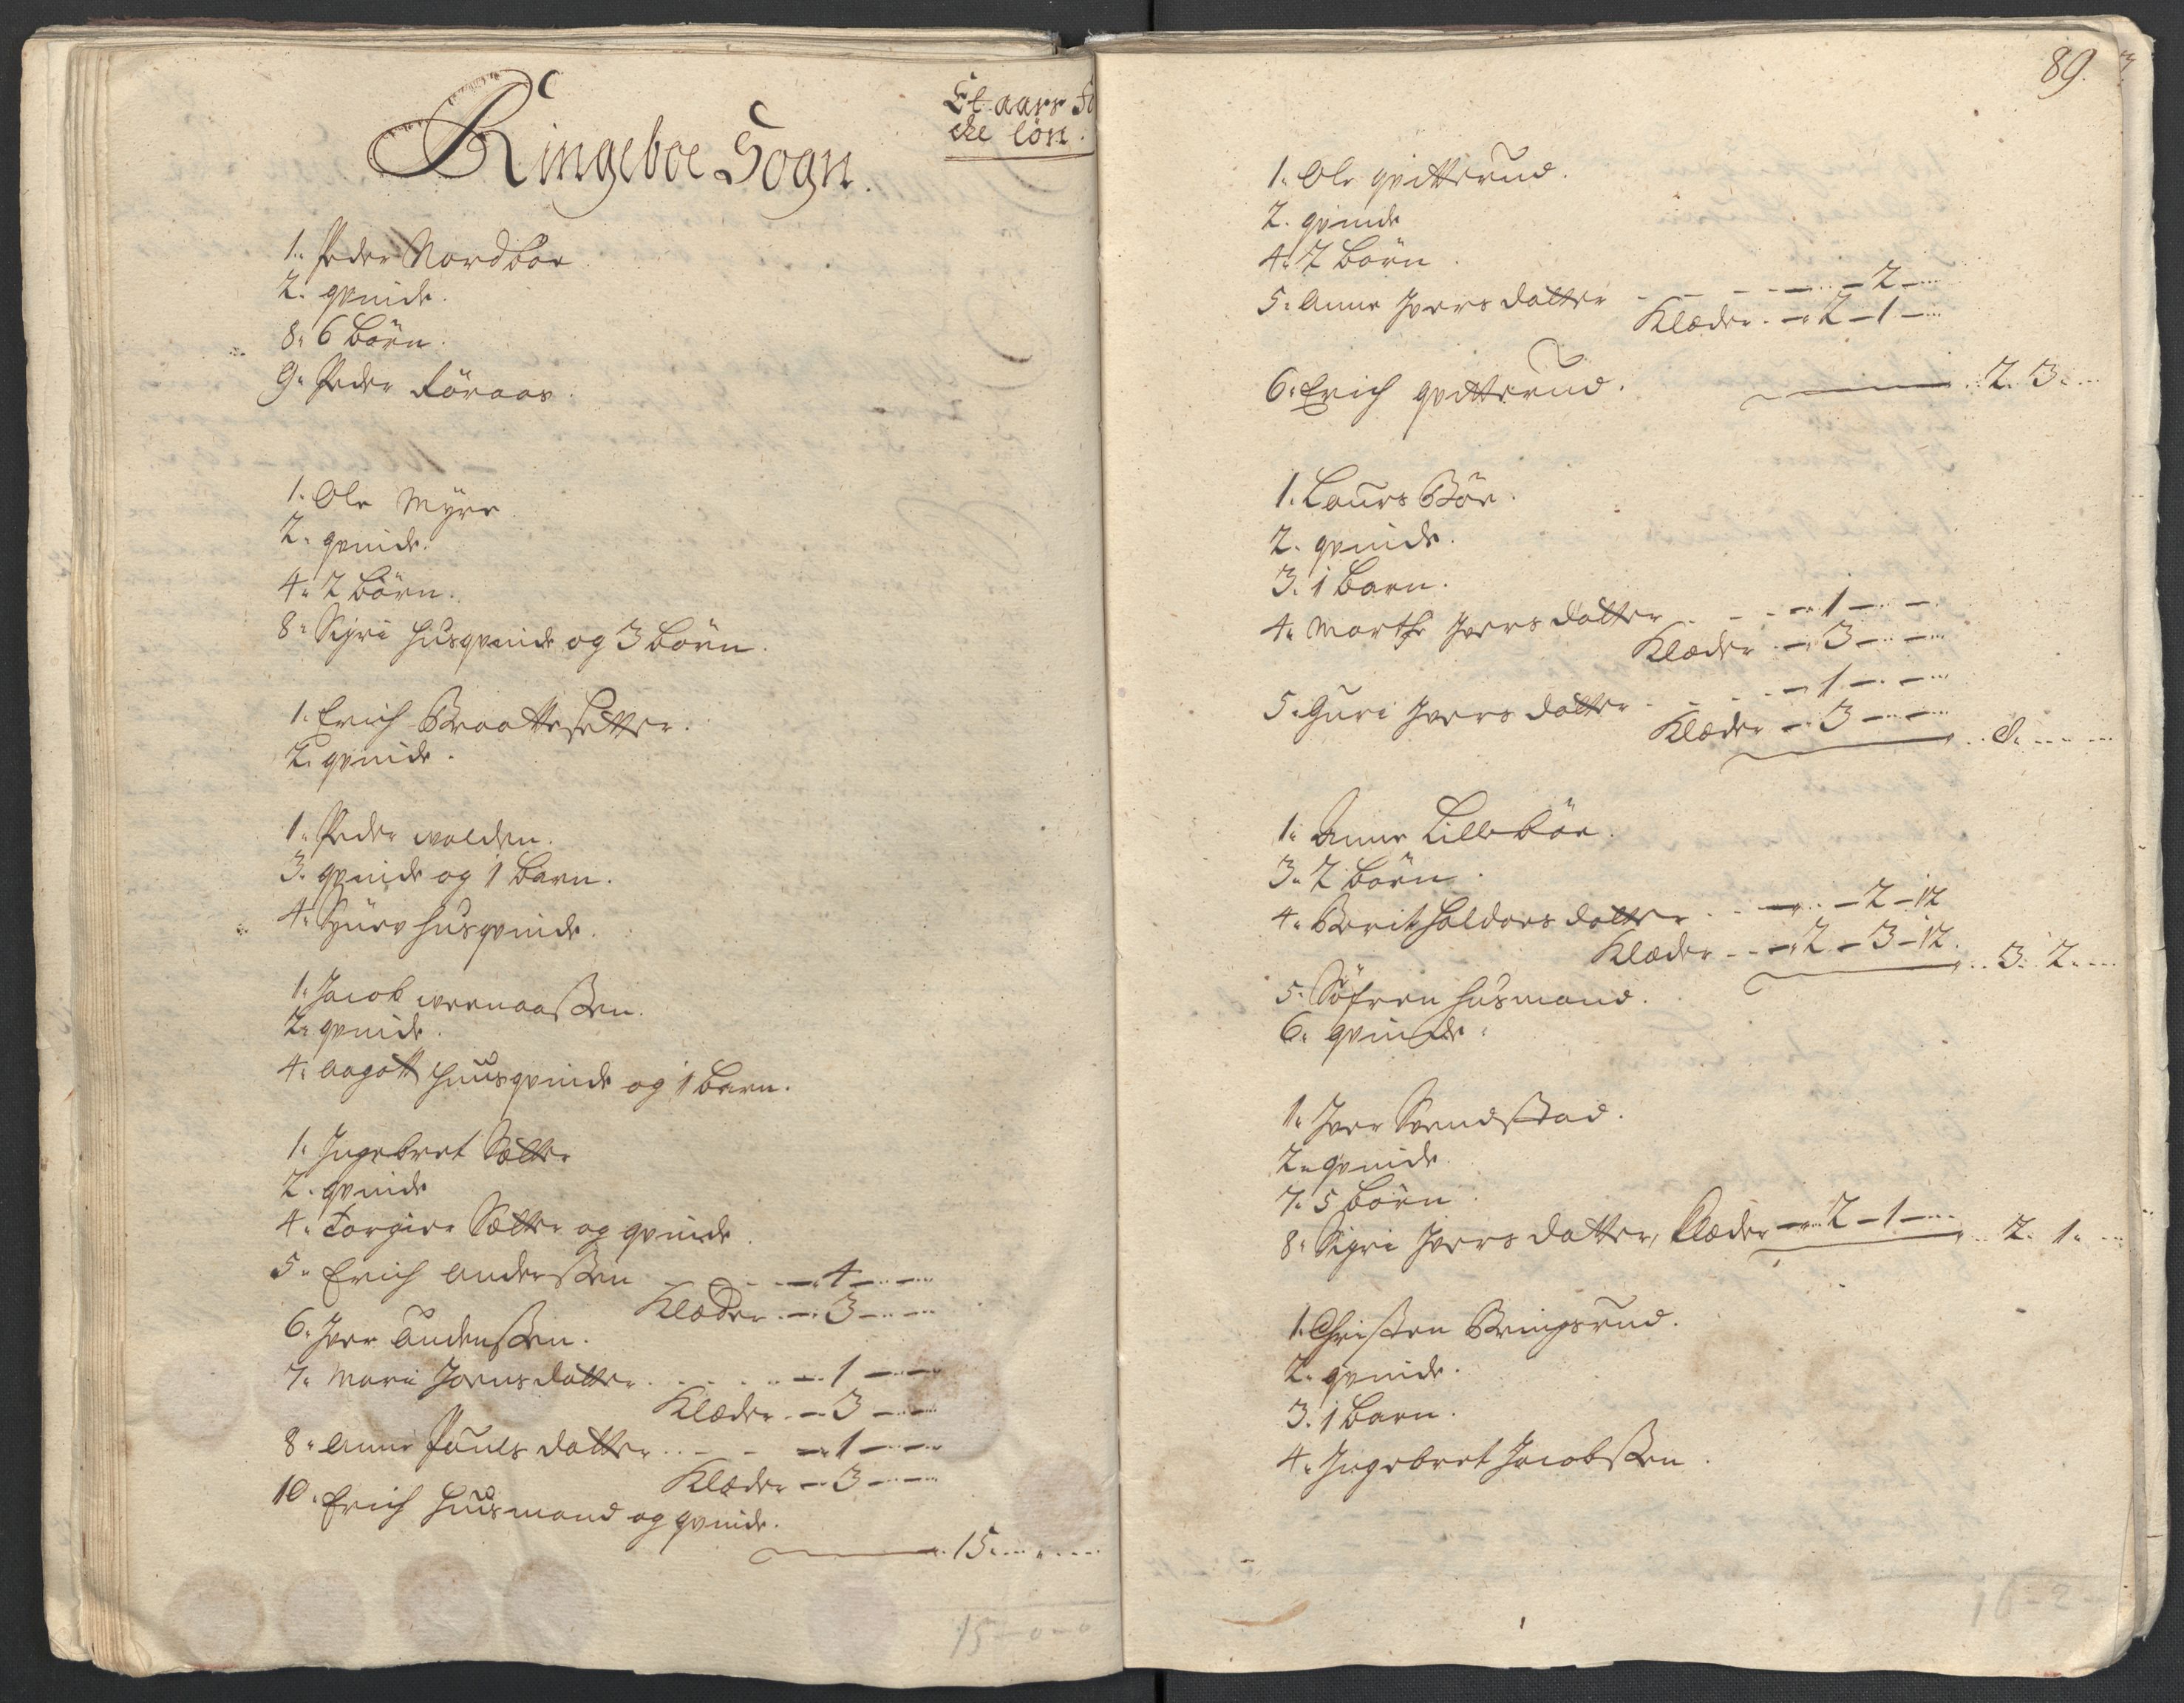 Ringeboe Sogn.
Et aars
che lön.
1. Peder Nordböe.
2. qvinde.
8. 6 börn.
9. Peder Röraas.
1. Ole Myre.
2. qvinde.
4. 2 börn.
8. Sigri husqvinde og 3 börn.
1. Erich Braattesetter.
2. qvinde.
1. Peder wolden.
3. qvinde og 1 barn.
4. husqvinde.
1. Jacob
2. qvinde.
4. Aagott huusqvinde og 1 barn.
1. Ingebret Sætter
2. qvinde
4. Torgier Sætter og qvinde.
5. Erich Anderssen - 4 -
Klæder - 3 -
6. Iver Audenssen.
7. Mari Joens datter - 1 -
Klæder - 3 -
8. Anne Pouls datter - 1 -
Klæder - 3 -
10. Erich huusmand og qvinde.
15
15-0-0
89.
1. Ole qvitterud.
2. qvinde
4. 2 börn.
5. Anne Ivers datter - 2 -
Klæder - 2 - 1 -
6. Erich qvitterud. 2. 3.
1. Lours Böe.
2. qvinde.
3. 1 barn.
4. Marthe Ivers datter - 1 -
Klæder - 3 -
5. Guri Ivers datter - 1 -
Klæder - 3 - 8.
1. Anne Lilleböe.
3. 2 börn.
4. Berit Haldors datter - 2 - 12
Klæder - 2 - 3 - 12. 3. 2.
5. Söfren husmand.
6. qvinde.
1. Iver Svendstad.
2. qvinde
7. 5 börn.
8. Sigri Ivers datter, Klæder - 2 - 1 - 2. 1.
1. Christen Bringsrud.
2. qvinde.
3. 1 barn.
4. Ingebret Jacobssen.
16-2-